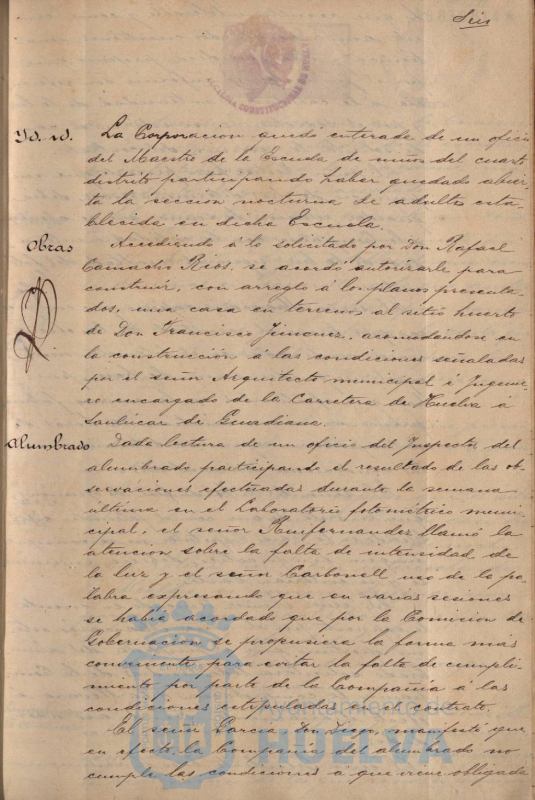 Seis
ALCALDIA CONSTITUCIONAL DE HUELVA
Yd. id. La Corporacion quedó enterada de un oficio
del Maestro de la Escuela de niños del cuarto
distrito participando haber quedado abier-
ta la seccion nocturna de adultos esta-
blecida en dicha Escuela.
Obras Accediendo á lo solicitado por Don Rafael
Camacho Rios, se acordó autorizarle para
construir, con arreglo á los planos presenta-
dos, una casa en terrenos al sitio huerto
de Don Francisco Jimenez, acomodándose en
la construcción á las condiciones señaladas
por el señor Arquitecto municipal é Ingenie-
ro encargado de la Carretera de Huelva á
Sanlúcar de Guadiana.
Alumbrado Dada lectura de un oficio del Inspector del
alumbrado participando el resultado de las ob-
servaciones efectuadas durante la semana
última en el Laboratorio fotométrico muni-
cipal, el señor Ruifernandez llamó la
atencion sobre la falta de intensidad de
la luz y el señor Carbonell usó de la pa-
labra expresando que en varias sesiones
se había acordado que por la Comision de
Gobernacion se propusiera la forma más
conveniente para evitar la falta de cumpli-
miento por parte de la Compañía á las
condiciones estipuladas en el contrato.
El señor Garcia, Don Diego, manifestó que
en efecto la Compañía del alumbrado no
cumple las condiciones á que viene obligada
Ayuntamiento de
HUELVA